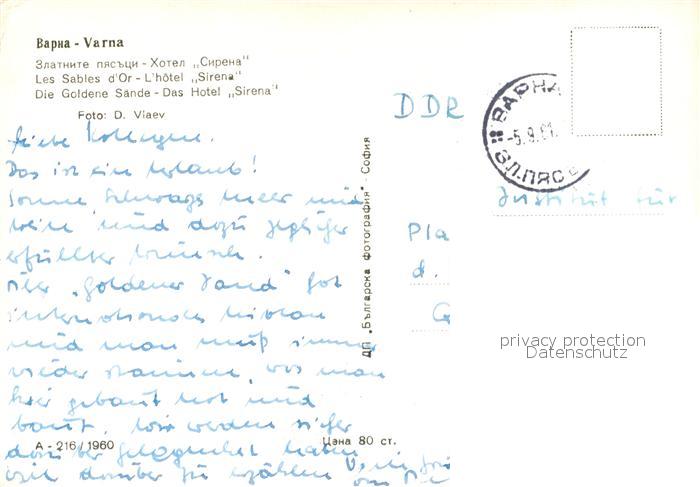 Варна - Varna
Златните пясъци - Хотел „Сирена“
Les Sables d'Or - L'hôtel „Sirena“
Die Goldene Sände - Das Hotel „Sirena“
Foto: D. Vlaev
Liebe Kollegen.
Das ist ein Urlaub!
Sonne Schwarzes Meer und
Wein und dazu jeglicher
erfüllter Wunsch.
Der „Goldener Sand" hat
internationales Niveau
und man muß immer
wieder staunen, was man
hier gebaut hat und
baut. Wir werden sicher
darüber Gelegenheit haben
viel darüber zu erzählen
А - 216/1960
Цена 80 ст.
ДП „Българска фотография“ - София
DDR
ВАРНА
-5.9.61.
ЗЛ.ПЯСЪ
Institut für
Pla
d.
G
privacy protection
Datenschutz